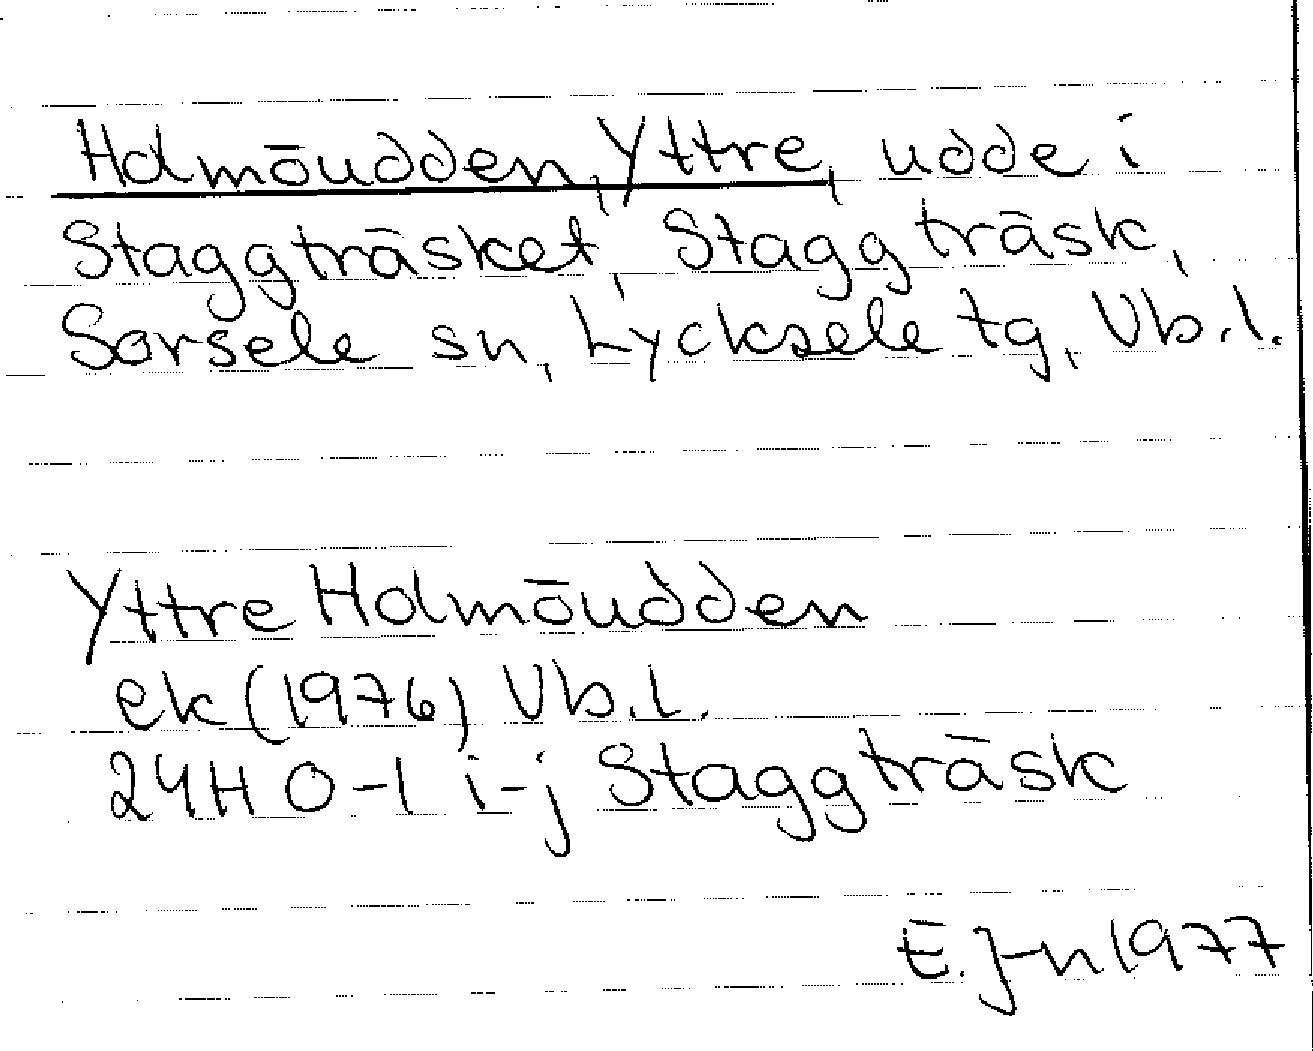 Holmöudden, Yttre, udde i
Staggträsket, Staggträsk,
Sorsele sn, Lycksele tg, Vb.l.
Yttre Holmöudden
ek (1976) Vb.l.
24H 0-1 i-j Staggträsk
E. J-n 1977